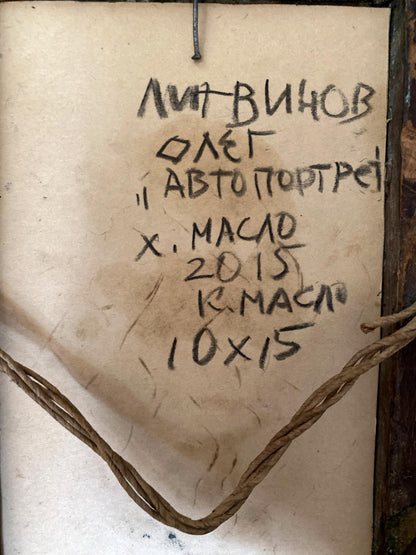 ЛИТВИНОВ
ОЛЕГ
„АВТОПОРТРЕТ
Х. МАСЛО
2015
К. МАСЛО
10х15